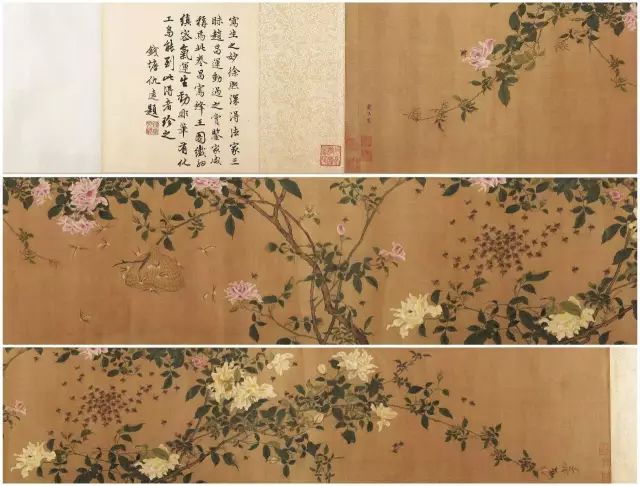 寫生之妙徐熙深得法家三
昧趙昌運動過之賞鑒家咸
稱焉此卷昌寫蜂王圖纖細
縝密氣運生動非筆有化
工烏能到此得者珍之
錢塘仇遠題